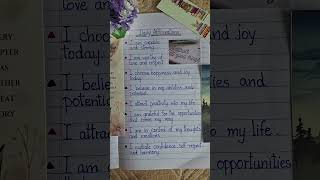 Daily Affirmations
I am capable
and strong.
I am worthy of
love and respect
I choose happiness and joy
today.
I believe in my abilities and
potential.
I attract positivity into my life.
I am grateful for the opportunities
that come my way.
I am in control of my thoughts
and emotions.
I radiate confidence, self respect
and harmony.
love and
I choose
today.
I believe
potential
I attract
I am
and joy
and
my life.
opportunities